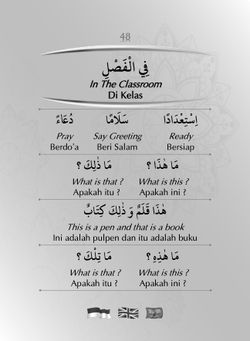 48
فِي الْفَصْلِ
In The Classroom
Di Kelas
اِسْتِعْدَادًا سَلَامًا دُعَاءً
Pray Say Greeting Ready
Berdo'a Beri Salam Bersiap
مَا هٰذَا ؟ مَا ذٰلِكَ ؟
What is that ? What is this ?
Apakah itu ? Apakah ini ?
هٰذَا قَلَمٌ وَ ذٰلِكَ كِتَابٌ
This is a pen and that is a book
Ini adalah pulpen dan itu adalah buku
مَا هٰذِهِ ؟ مَا تِلْكَ ؟
What is that ? What is this ?
Apakah itu ? Apakah ini ?